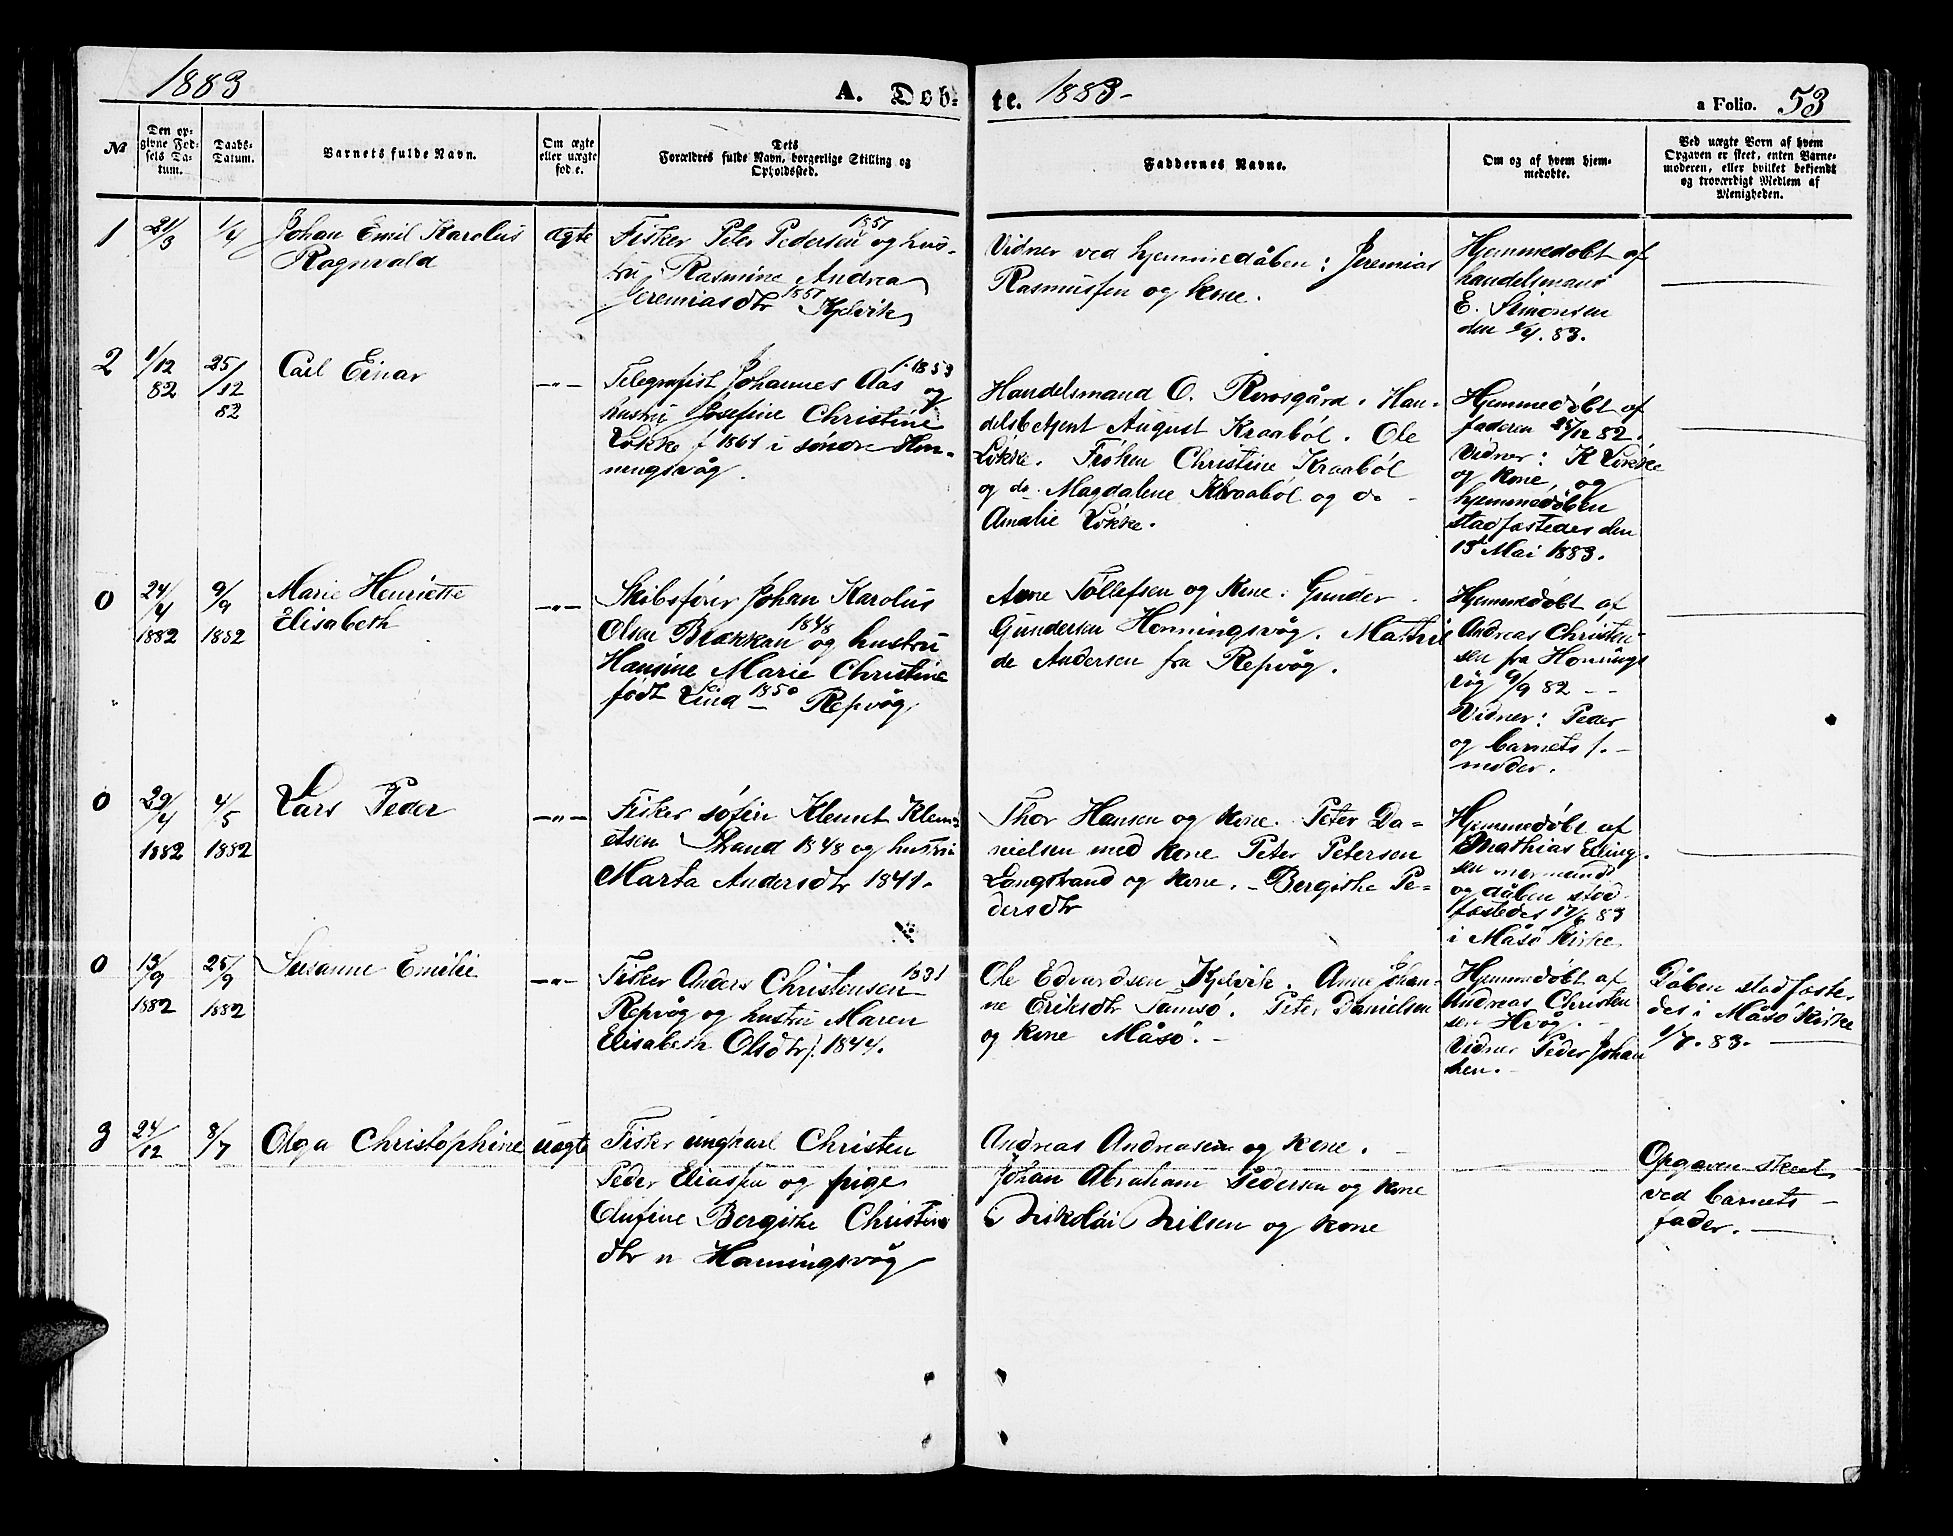 1883
A. Døb-
te. 1883-
a Folio. 53
№
Den op-
givne Fød-
sels Da-
tum.
Daabs-
Datum.
Barnets fulde Navn.
Om ægte
eller uægte
født.
Dets
Forældres fulde Navn, borgerlige Stilling og
Opholdssted.
Faddernes Navne.
Om og af hvem hjem-
medøbt.
Ved uægte Børn af hvem
Opgaven er skeet, enten Barne-
moderen, eller hvilket bekjendt
og troværdigt Medlem af
Menigheden.
1
21/3
1/4
Johan Emil Karolus
Ragnvald
ægte
Fisker Peter Pedersen 1851 og hus-
tru Rasmine Andrea
Jeremiasdtr 1851 Kjelvik
Vidner ved hjemmedåben: Jeremias
Rasmussen og kone.
Hjemmedøbt af
handelsmand
E. Simonsen
den 1/4. 83.
2
1/12
82
25/12
82
Carl Einar
—„—
Telegrafist Johannes Aas f. 1853 og
hustru Josefine Christine
Løkke f 1861 i søndre Hon-
ningsvåg.
Handelsmand O. Rorosgård. Han-
delsbetjent August Kraabøl. Ole
Løkke. Frøken Christine Kraabøl
og do. Magdalene Kraabøl og do -
Amalie Løkke.
Hjemmedøbt af
faderen 25/12 82.
Vidner: K Løkke
og kone, og
hjemmedåben
stadfæstedes den
13de Mai 1883.
0
24/4
1882
9/9
1882
Marie Henriette
Elisabeth
—„—
Skibsfører Johan Karolus
Olsen Brækkan 1848 og hustru
Hansine Marie Christine
født Lind 1850 Repvåg.
Arne Tollefsen og kone. Gunder
Gundersen Honningsvåg. Mathil
de Andersen fra Repvåg.
Hjemmedøbt af
Andreas Christen-
sen fra Honings
våg 9/9 82 - -
Vidner: Peder
og barnets f. -
moder.
0
29/4
1882
4/5
1882
Lars Peder
—„—
Fisker søfin Klemet Klem-
etsen Strand 1848 og hustru
Marta Andersdtr 1841.
Thor Hansen og kone. Peter Da-
nielsen med kone Peter Petersen
Langstrand og kone. - Bergithe Pe-
dersdtr
Hjemmedøbt af
Mathias Elling-
sen
og dåben stad
fæstedes 17/6 83
i Måsø Kirke
0
13/9
1882
25/9
1882
Susanne Emilie
—„—
Fisker Anders Christensen 1831
Repvåg og hustru Maren
Elisabeth Olsdtr f. 1844.
Ole Edvardsen Kjelvik. Anne Johan-
ne Eriksdtr Tamsø. Peter Danielsen
og kone Måsø. -
Hjemmedøbt af
Andreas Christen
sen Hvåg. -
Vidner Peder Johan
sen. -
Dåben stadfæste-
des i Måsø Kirke
1/7. 83. -
3
24/12
8/7
Olga Christophine
uægte
Fisker ungkarl Christen
Peder Eliassen og pige
Olufine Bergithe Christens
dtr n Honningsvåg
Andreas Andreasen og kone.
Johan Abraham Pedersen og kone
Nikolai Nilsen og kone
Opgaven skeet
ved barnets -
fader. -